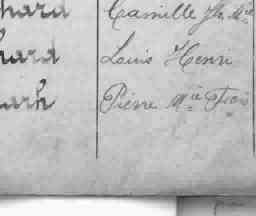 hard Camille Jh Mie
hard Louis Henri
arh Pierre Mie Fcois